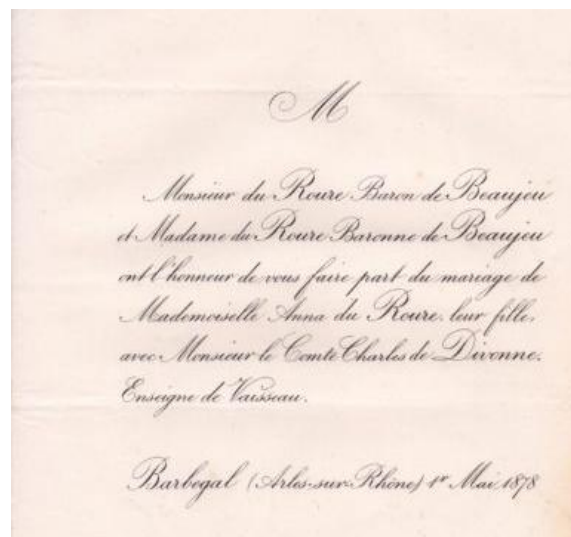 M
Monsieur du Roure Baron de Beaujeu
et Madame du Roure Baronne de Beaujeu
ont l'honneur de vous faire part du mariage de
Mademoiselle Anna du Roure, leur fille,
avec Monsieur le Comte Charles de Divonne,
Enseigne de Vaisseau.
Barbegal (Arles-sur-Rhône) 1er Mai 1878